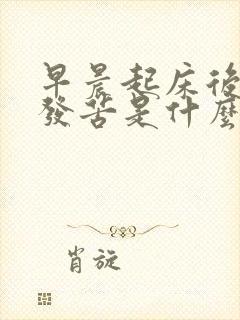 早晨起床後
發苦是什麼
肖旋